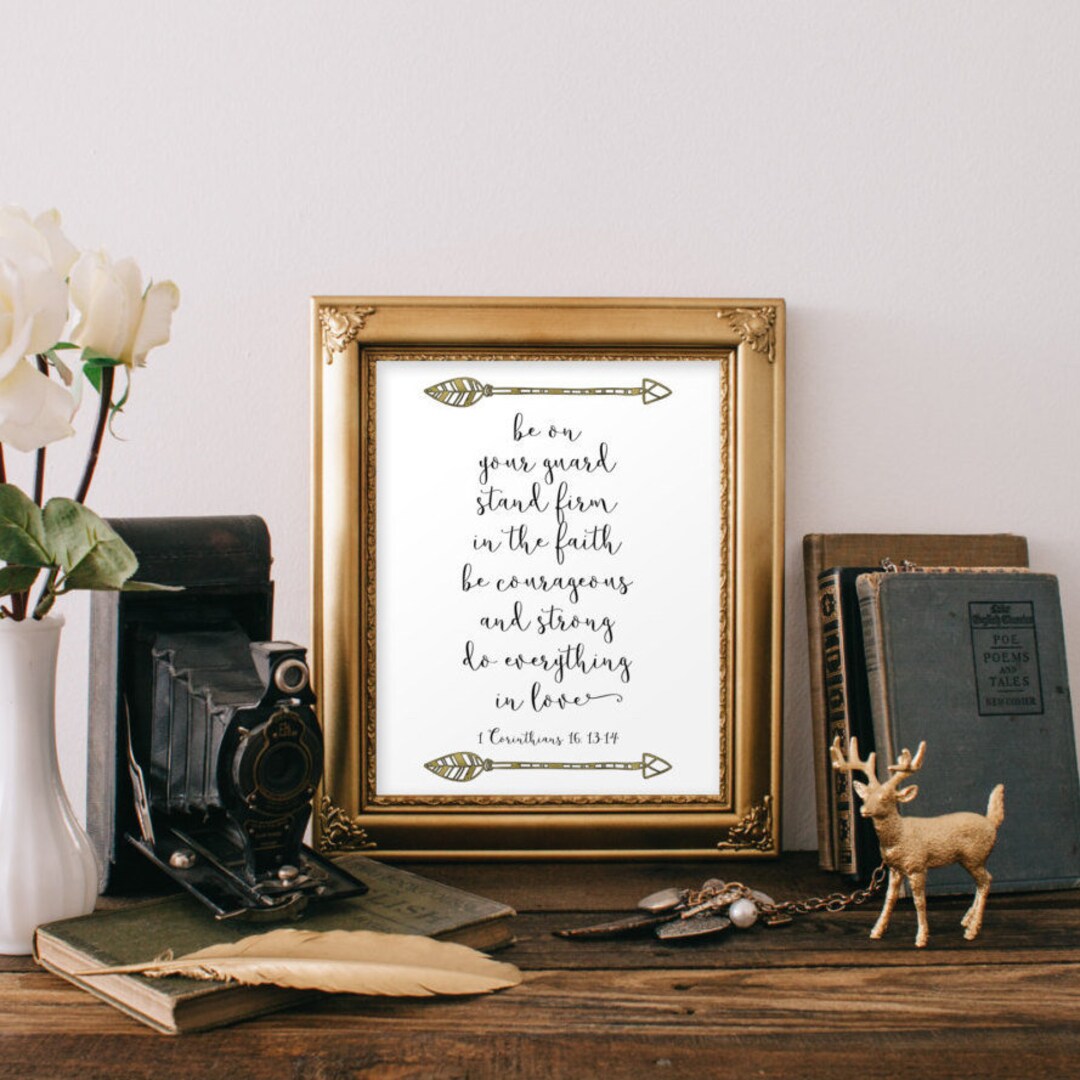 be on
your guard
stand firm
in the faith
be courageous
and strong
do everything
in love
1 Corinthians 16:13-14
POE
POEMS
AND
TALES